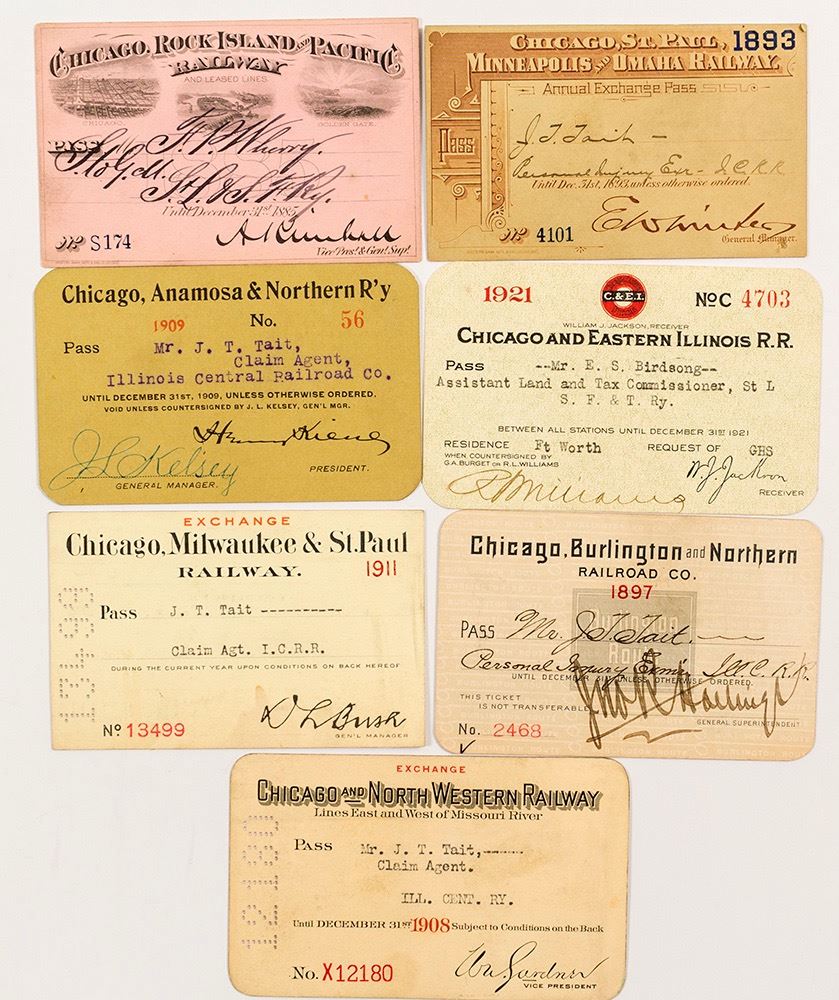 CHICAGO, ROCK ISLAND AND PACIFIC
RAILWAY
AND LEASED LINES.
CHICAGO.
GOLDEN GATE.
PASS F. P. Wherry.
St. L & S. F. Ry.
Until December 31st 1885
No S174
Vice Pres! & Genl Sup!
CHICAGO, ST. PAUL, 1893
MINNEAPOLIS AND OMAHA RAILWAY.
Annual Exchange Pass
Pass
J. T. Tait —
Personal Injury Exr - I.C.R.R
Until Dec. 31st, 1893, unless otherwise ordered.
No 4101
E W Winter
General Manager.
Chicago, Anamosa & Northern R'y
1909 No. 56
Pass Mr. J. T. Tait,
Claim Agent,
Illinois Central Railroad Co.
UNTIL DECEMBER 31ST, 1909, UNLESS OTHERWISE ORDERED.
VOID UNLESS COUNTERSIGNED BY J. L. KELSEY, GEN'L MGR.
JL Kelsey
GENERAL MANAGER.
PRESIDENT.
1921 C.&E.I. No C 4703
WILLIAM J. JACKSON, RECEIVER
CHICAGO AND EASTERN ILLINOIS R.R.
PASS --Mr. E. S. Birdsong--
Assistant Land and Tax Commissioner, St L
S. F. & T. Ry.
BETWEEN ALL STATIONS UNTIL DECEMBER 31ST 1921
RESIDENCE Ft Worth REQUEST OF GHS
WHEN COUNTERSIGNED BY
G.A. BURGET OR R.L. WILLIAMS
RLWilliams
W. J. Jackson
RECEIVER
EXCHANGE
Chicago, Milwaukee & St. Paul
RAILWAY. 1911
13499
Pass J. T. Tait ----------
Claim Agt. I.C.R.R.
DURING THE CURRENT YEAR UPON CONDITIONS ON BACK HEREOF
No 13499
D L Bush
GEN'L MANAGER
Chicago, Burlington and Northern
RAILROAD CO.
1897
Burlington
Route
PASS Mr. J. T. Tait. —
Personal Injury Exmr, Ill. C. R. R.
UNTIL DECEMBER 31ST UNLESS OTHERWISE ORDERED.
THIS TICKET
IS NOT TRANSFERABLE
GENERAL SUPERINTENDENT
No. 2468
EXCHANGE
CHICAGO AND NORTH WESTERN RAILWAY
Lines East and West of Missouri River
12180
PASS Mr. J. T. Tait,-----
Claim Agent.
ILL. CENT. RY.
Until DECEMBER 31ST 1908 Subject to Conditions on the Back
No. X12180
Wm Gardner
VICE PRESIDENT